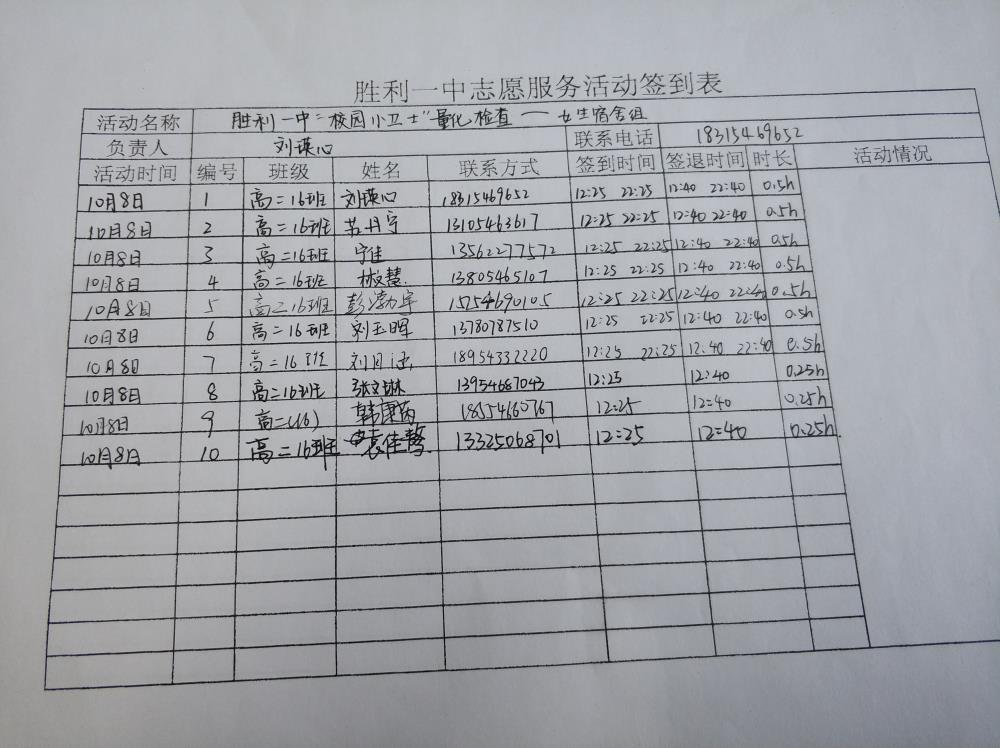 胜利一中志愿服务活动签到表
活动名称 胜利一中“校园小卫士”量化检查——女生宿舍组
负责人 刘瑛心 联系电话 18315469652
活动时间 编号 班级 姓名 联系方式 签到时间 签退时间 时长 活动情况
10月8日 1 高二16班 刘瑛心 18315469652 12:25 22:25 12:40 22:40 0.5h
10月8日 2 高二16班 苏丹宁 13105463617 12:25 22:25 12:40 22:40 0.5h
10月8日 3 高二16班 宁佳 13562277572 12:25 22:25 12:40 22:40 0.5h
10月8日 4 高二16班 13805465107 12:25 22:25 12:40 22:40 0.5h
10月8日 5 高二16班 彭渤宇 15254690105 12:25 22:25 12:40 22:40 0.5h
10月8日 6 高二16班 刘玉晖 13780787510 12:25 22:25 12:40 22:40 0.5h
10月8日 7 高二16班 刘月涵 18954332220 12:25 22:25 12:40 22:40 0.5h
10月8日 8 高二16班 张文琳 13954687043 12:25 12:40 0.25h
10月8日 9 高二(16) 韩康茜 18554660767 12:25 12:40 0.25h
10月8日 10 高二16班 袁佳慧 13325068701 12:25 12:40 0.25h